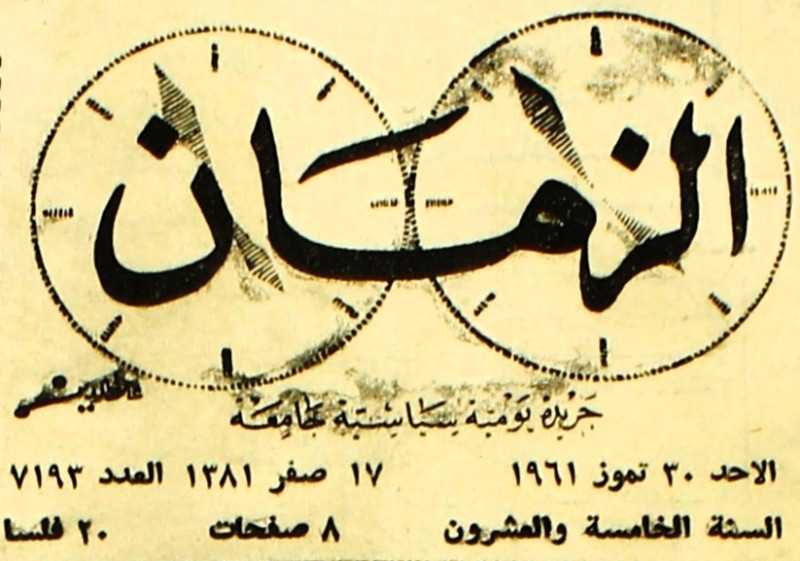 الزمان
جريدة يومية سياسية جامعة
الاحد ٣٠ تموز ١٩٦١ ١٧ صفر ١٣٨١ العدد ٧١٩٣
السنة الخامسة والعشرون ٨ صفحات ٢٠ فلسا